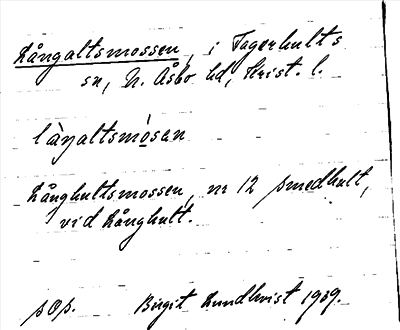 Långaltsmossen, i Fagerhults
sn, N. Åsbo hd, Krist. l.
làŋaltsmósan
Långhultsmossen, nr 12 Smedhult,
vid Långhult.
sOp. Birgit Lundkvist 1939.